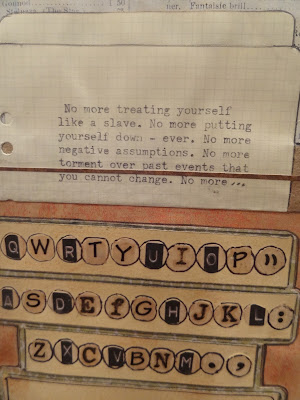 No more treating yourself
like a slave. No more putting
yourself down - ever. No more
negative assumptions. No more
torment over past events that
you cannot change. No more ...
Q W R T Y U I O P »
A S D E f G H J K L :
Z X C V B N M . ,